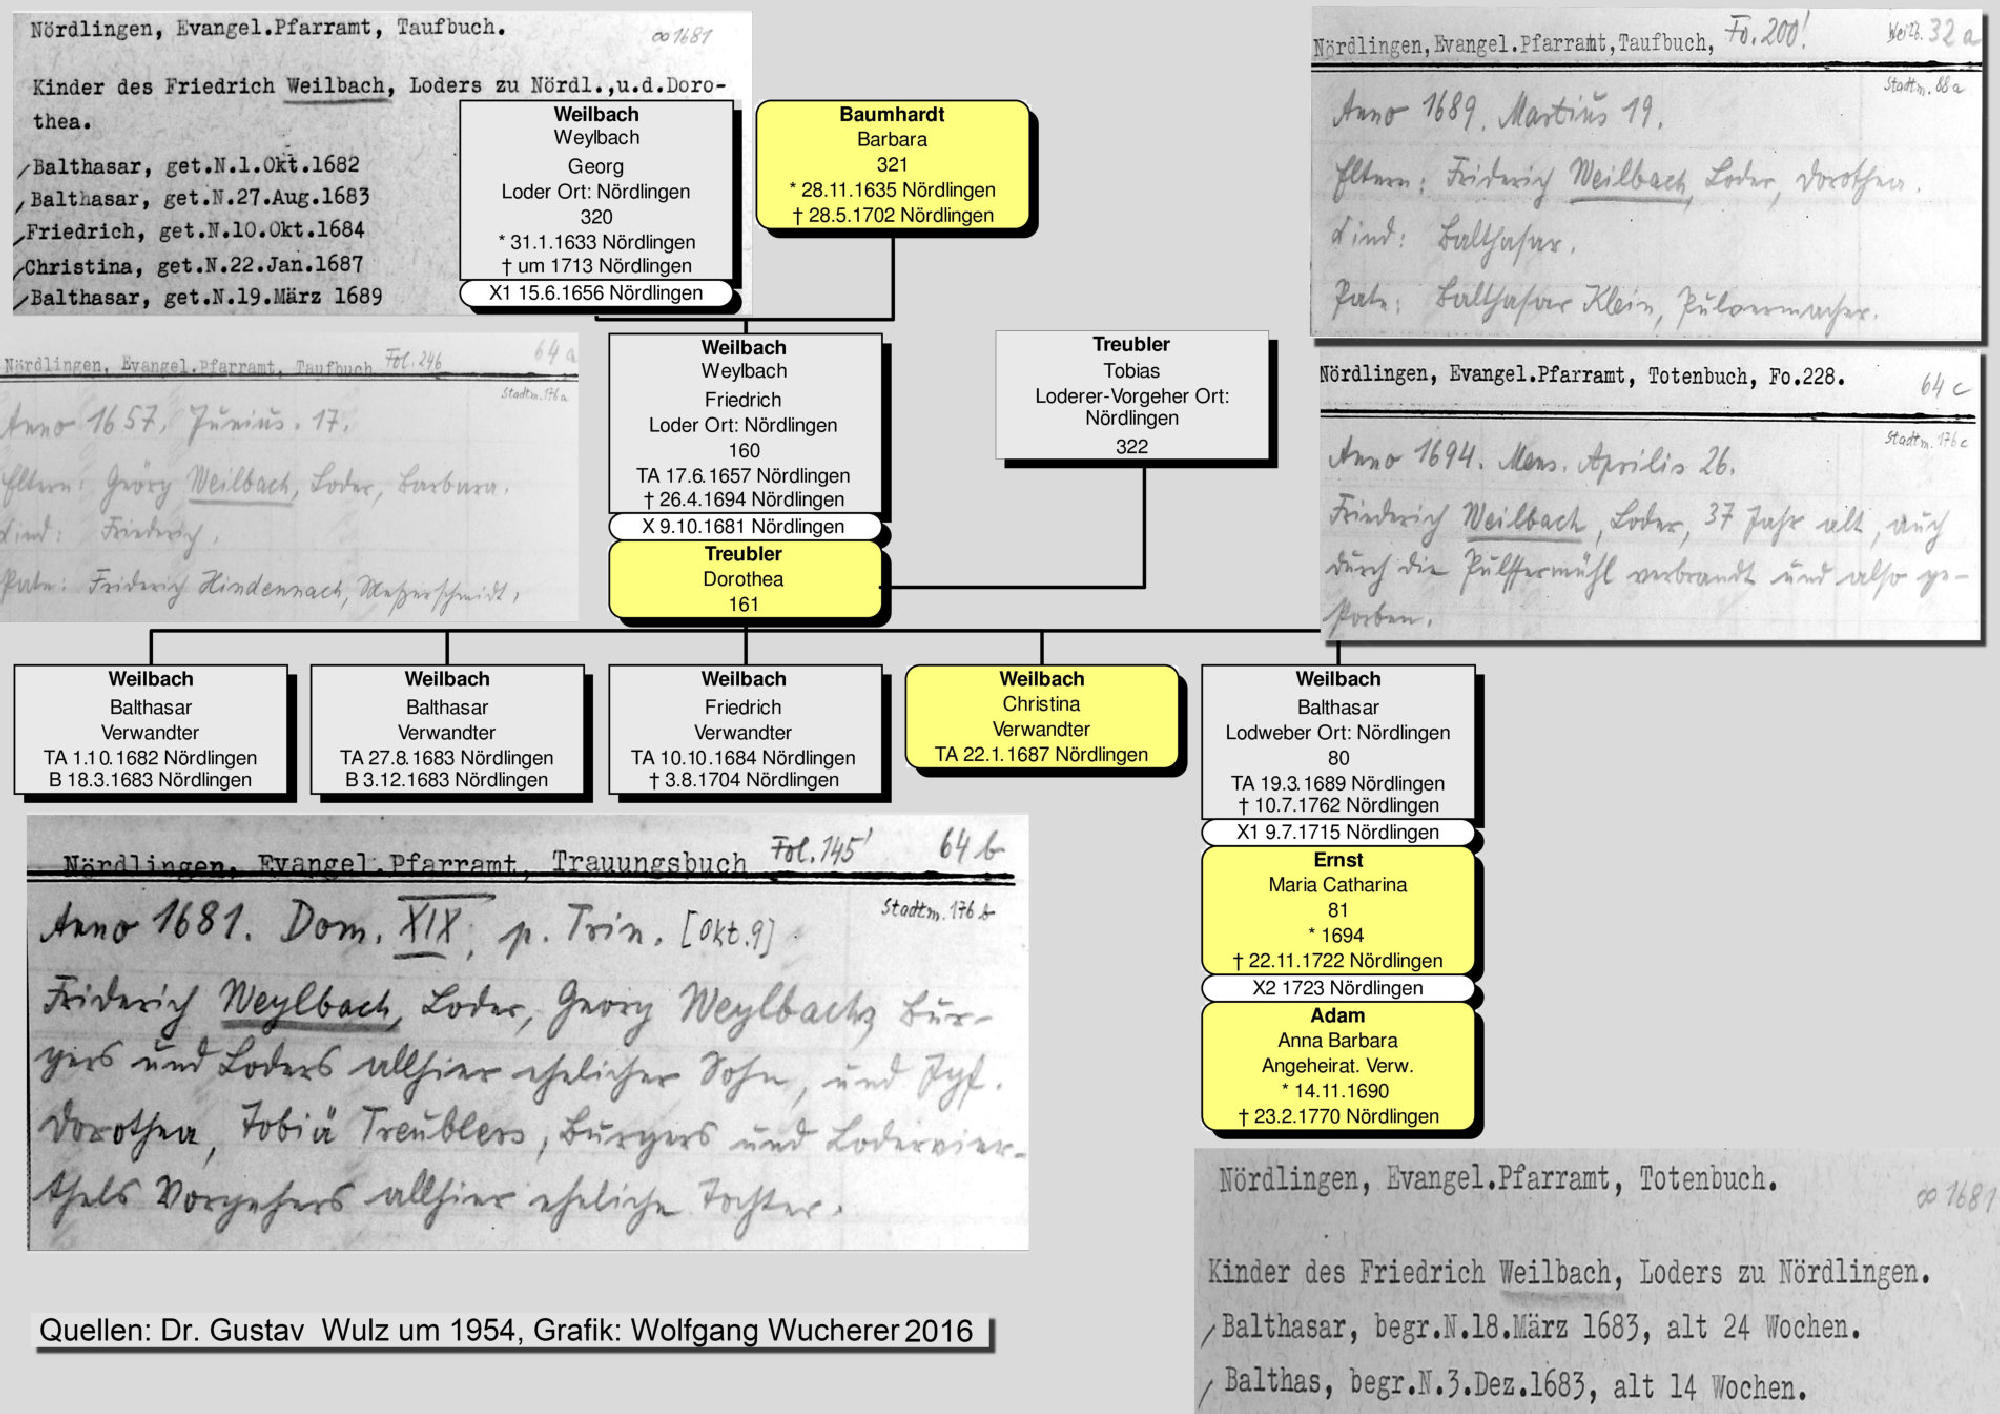 Nördlingen, Evangel.Pfarramt, Taufbuch.
∞ 1681
Kinder des Friedrich Weilbach, Loders zu Nördl.,u.d.Doro-
thea.
Balthasar, get.N.1.Okt.1682
Balthasar, get.N.27.Aug.1683
Friedrich, get.N.10.Okt.1684
Christina, get.N.22.Jan.1687
Balthasar, get.N.19.März 1689
Weilbach
Weylbach
Georg
Loder Ort: Nördlingen
320
* 31.1.1633 Nördlingen
† um 1713 Nördlingen
X1 15.6.1656 Nördlingen
Baumhardt
Barbara
321
* 28.11.1635 Nördlingen
† 28.5.1702 Nördlingen
Nördlingen,Evangel.Pfarramt,Taufbuch, Fo.200'
32 a
Stadtm. 88a
Anno 1689. Martius 19.
Eltern: Friderich Weilbach, Loder, Dorothea.
Kind: Balthasar.
Pate: Balthasar Klein, Pulvermacher.
Nördlingen, Evangel.Pfarramt, Taufbuch Fol.246
64 a
Stadtm.176a
Anno 1657. Junius. 17.
Eltern: Georg Weilbach, Loder, Barbara.
Kind: Friederich.
Pate: Friderich Hindennach, Messerschmidt.
Weilbach
Weylbach
Friedrich
Loder Ort: Nördlingen
160
TA 17.6.1657 Nördlingen
† 26.4.1694 Nördlingen
X 9.10.1681 Nördlingen
Treubler
Dorothea
161
Treubler
Tobias
Loderer-Vorgeher Ort:
Nördlingen
322
Nördlingen, Evangel.Pfarramt, Totenbuch, Fo.228.
64 c
Stadtm. 176 c
Anno 1694. Mens. Aprilis 26.
Friederich Weilbach, Loder, 37 Jahr alt, auch
durch die Pulffermühl verbrandt und also ge-
storben.
Weilbach
Balthasar
Verwandter
TA 1.10.1682 Nördlingen
B 18.3.1683 Nördlingen
Weilbach
Balthasar
Verwandter
TA 27.8.1683 Nördlingen
B 3.12.1683 Nördlingen
Weilbach
Friedrich
Verwandter
TA 10.10.1684 Nördlingen
† 3.8.1704 Nördlingen
Weilbach
Christina
Verwandter
TA 22.1.1687 Nördlingen
Weilbach
Balthasar
Lodweber Ort: Nördlingen
80
TA 19.3.1689 Nördlingen
† 10.7.1762 Nördlingen
X1 9.7.1715 Nördlingen
Ernst
Maria Catharina
81
* 1694
† 22.11.1722 Nördlingen
X2 1723 Nördlingen
Adam
Anna Barbara
Angeheirat. Verw.
* 14.11.1690
† 23.2.1770 Nördlingen
Nördlingen, Evangel.Pfarramt, Trauungsbuch Fol.145'
64 b
Stadtm. 176 b
Anno 1681. Dom. XIX. p. Trin. [Okt.9]
Friderich Weylbach, Loder, Georg Weylbachs Bur-
gers und Loders allhier ehelicher Sohn, und Jgf.
Dorothea, Tobiä Treublers, Burgers und Lodervier-
thels Vorgehers allhier eheliche Tochter.
Nördlingen, Evangel.Pfarramt, Totenbuch.
∞ 1681
Kinder des Friedrich Weilbach, Loders zu Nördlingen.
Balthasar, begr.N.18.März 1683, alt 24 Wochen.
Balthas, begr.N.3.Dez.1683, alt 14 Wochen.
Quellen: Dr. Gustav Wulz um 1954, Grafik: Wolfgang Wucherer 2016